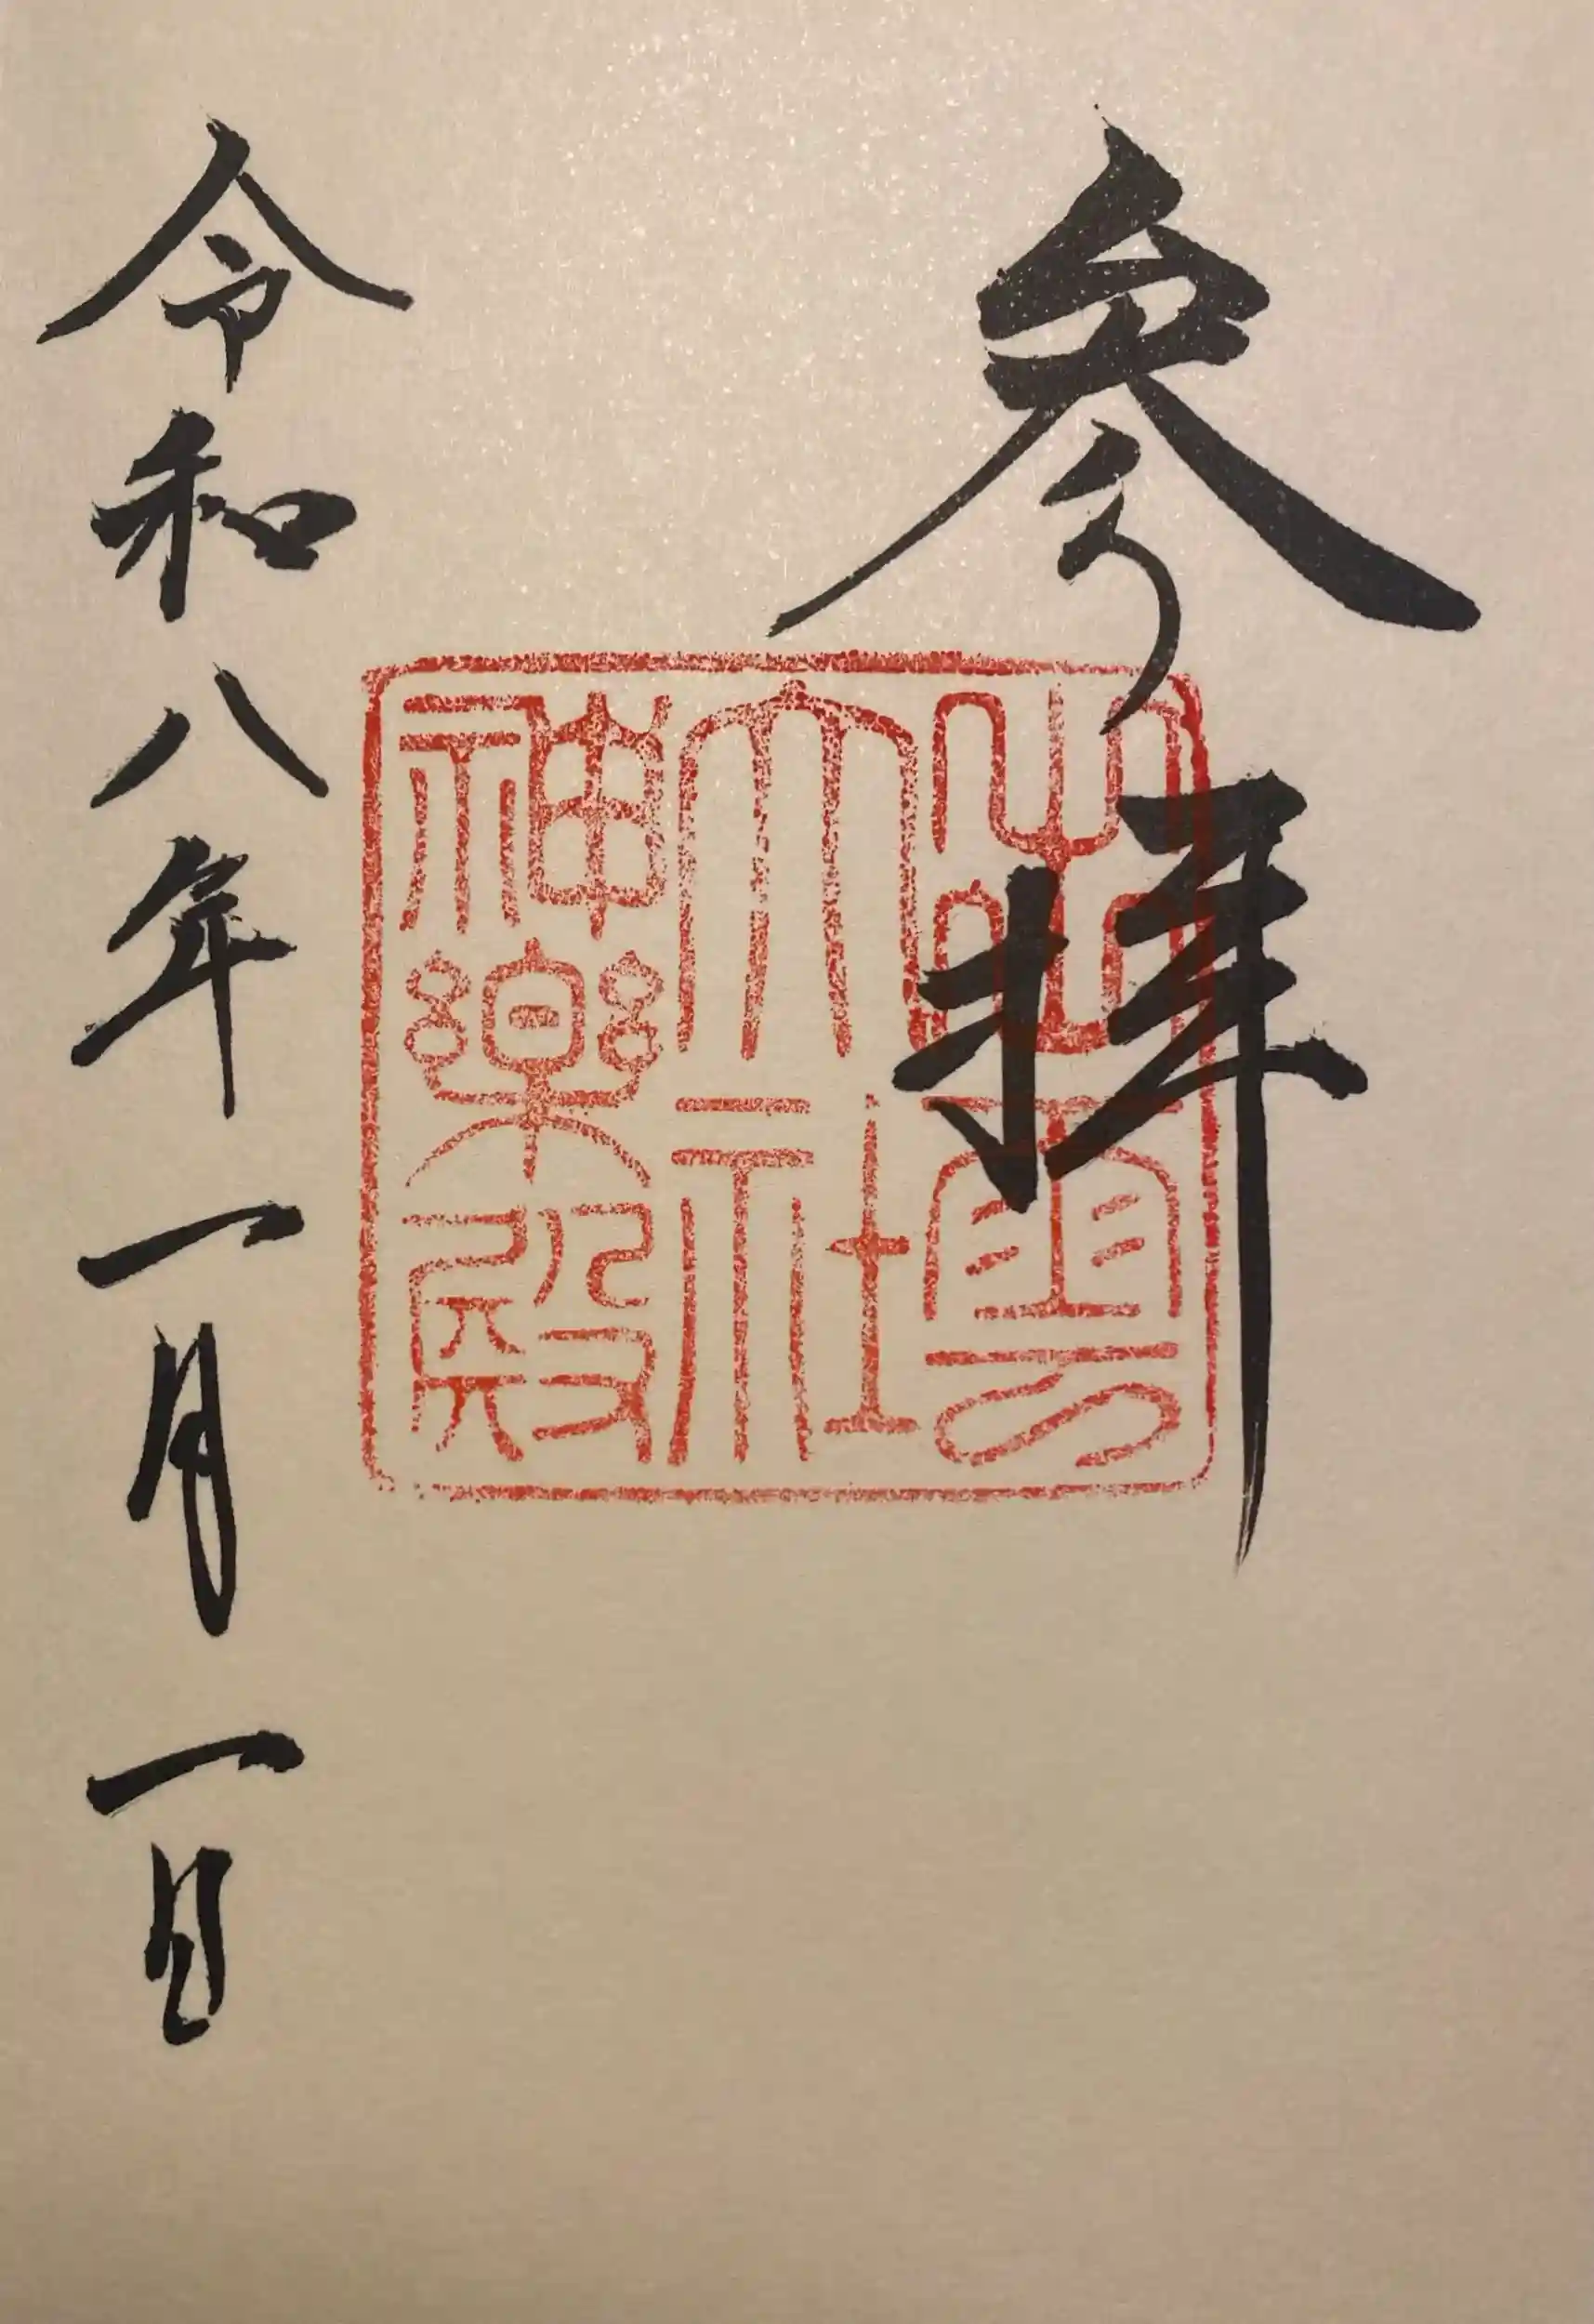 参拝
出雲
大社
神楽殿
令和八年一月一日